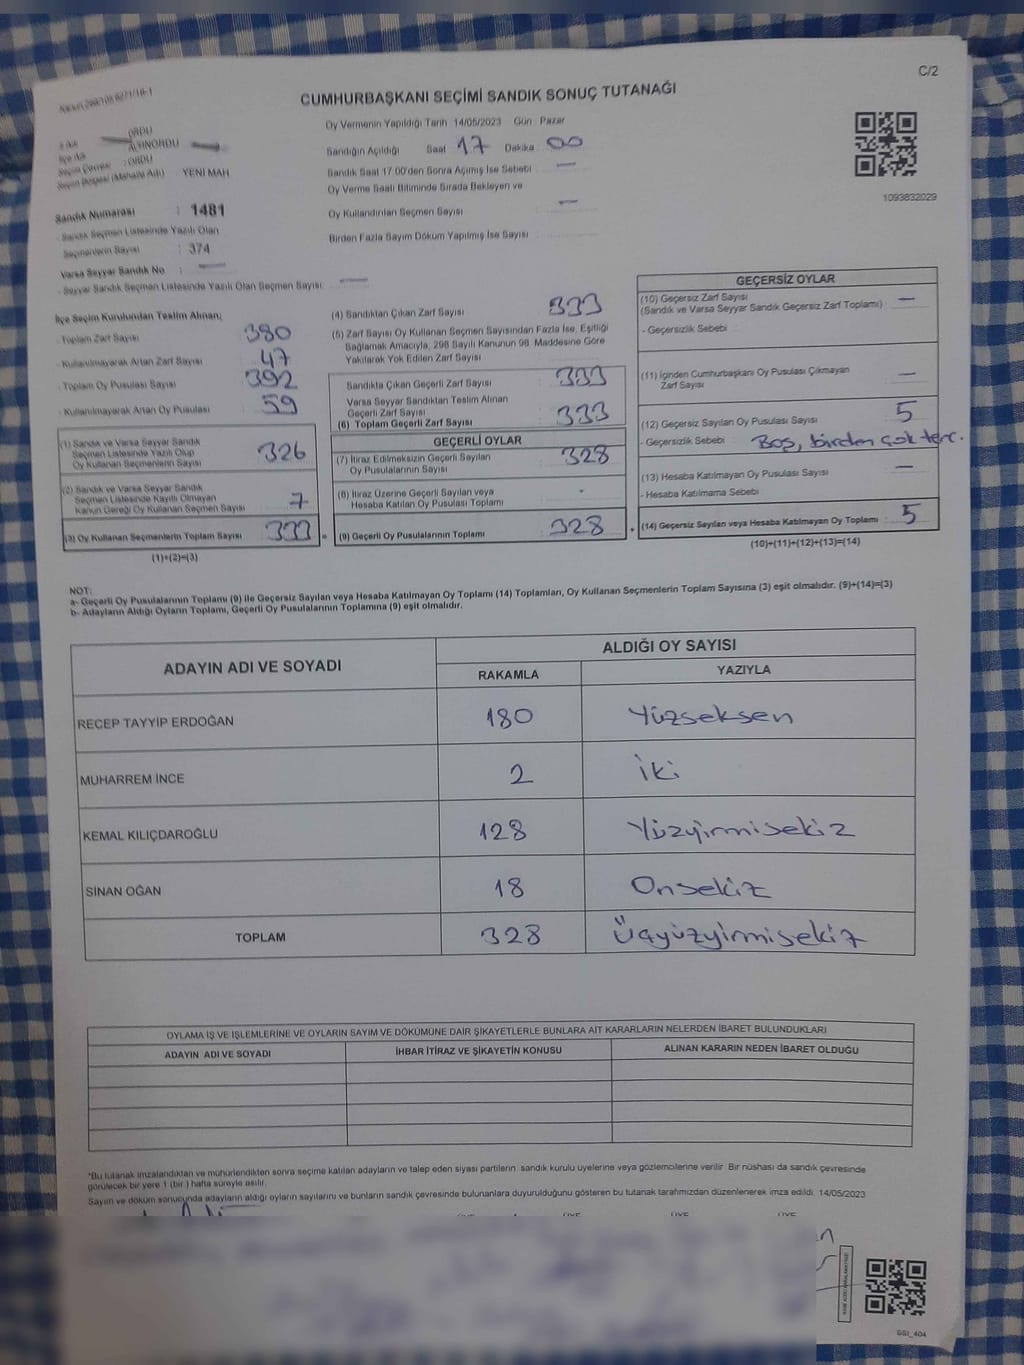 C/2
CUMHURBAŞKANI SEÇİMİ SANDIK SONUÇ TUTANAĞI
Oy Vermenin Yapıldığı Tarih 14/05/2023 Gün Pazar
Sandığın Açıldığı Saat 17 Dakika 00
Sandık Saat 17:00'den Sonra Açımış İse Sebebi —
Oy Verme Saati Bitiminde Sırada Bekleyen ve
Oy Kullandırılan Seçmen Sayısı —
Birden Fazla Sayım Döküm Yapılmış İse Sayısı
1093832029
ORDU
ALTINORDU
İlçe Adı
Seçim Çevresi : ORDU
Seçim Bölgesi (Mahalle Adı) YENİ MAH.
Sandık Numarası : 1481
- Sandık Seçmen Listesinde Yazılı Olan
Seçmenlerin Sayısı : 374
Varsa Seyyar Sandık No : —
- Seyyar Sandık Seçmen Listesinde Yazılı Olan Seçmen Sayısı: —
İlçe Seçim Kurulundan Teslim Alınan;
- Toplam Zarf Sayısı 380
- Kullanılmayarak Artan Zarf Sayısı 47
- Toplam Oy Pusulası Sayısı 392
- Kullanılmayarak Artan Oy Pusulası 59
(1) Sandık ve Varsa Seyyar Sandık
Seçmen Listesinde Yazılı Olup
Oy Kullanan Seçmenlerin Sayısı 326
(2) Sandık ve Varsa Seyyar Sandık
Seçmen Listesinde Kayıtlı Olmayan
Kanun Gereği Oy Kullanan Seçmen Sayısı 7
(3) Oy Kullanan Seçmenlerin Toplam Sayısı 333 =
(1)+(2)=(3)
(4) Sandıktan Çıkan Zarf Sayısı 333
(5) Zarf Sayısı Oy Kullanan Seçmen Sayısından Fazla İse, Eşitliği
Sağlamak Amacıyla, 298 Sayılı Kanunun 98. Maddesine Göre
Yakılarak Yok Edilen Zarf Sayısı
Sandıkta Çıkan Geçerli Zarf Sayısı 333
Varsa Seyyar Sandıktan Teslim Alınan
Geçerli Zarf Sayısı
(6) Toplam Geçerli Zarf Sayısı 333
GEÇERLİ OYLAR
(7) İtiraz Edilmeksizin Geçerli Sayılan
Oy Pusulalarının Sayısı 328
(8) İtiraz Üzerine Geçerli Sayılan veya
Hesaba Katılan Oy Pusulası Toplamı -
(9) Geçerli Oy Pusulalarının Toplamı 328 +
GEÇERSİZ OYLAR
(10) Geçersiz Zarf Sayısı —
(Sandık ve Varsa Seyyar Sandık Geçersiz Zarf Toplamı)
- Geçersizlik Sebebi
(11) İçinden Cumhurbaşkanı Oy Pusulası Çıkmayan
Zarf Sayısı —
(12) Geçersiz Sayılan Oy Pusulası Sayısı 5
- Geçersizlik Sebebi Boş, birden çok terc.
(13) Hesaba Katılmayan Oy Pusulası Sayısı —
- Hesaba Katılmama Sebebi
(14) Geçersiz Sayılan veya Hesaba Katılmayan Oy Toplamı 5
(10)+(11)+(12)+(13)=(14)
NOT:
a- Geçerli Oy Pusulalarının Toplamı (9) ile Geçersiz Sayılan veya Hesaba Katılmayan Oy Toplamı (14) Toplamları, Oy Kullanan Seçmenlerin Toplam Sayısına (3) eşit olmalıdır. (9)+(14)=(3)
b- Adayların Aldığı Oyların Toplamı, Geçerli Oy Pusulalarının Toplamına (9) eşit olmalıdır.
ADAYIN ADI VE SOYADI ALDIĞI OY SAYISI
RAKAMLA YAZIYLA
RECEP TAYYİP ERDOĞAN 180 Yüzseksen
MUHARREM İNCE 2 iki
KEMAL KILIÇDAROĞLU 128 Yüzyirmisekiz
SİNAN OĞAN 18 Onsekiz
TOPLAM 328 Üçyüzyirmisekiz
OYLAMA İŞ VE İŞLEMLERİNE VE OYLARIN SAYIM VE DÖKÜMÜNE DAİR ŞİKAYETLERLE BUNLARA AİT KARARLARIN NELERDEN İBARET BULUNDUKLARI
ADAYIN ADI VE SOYADI İHBAR İTİRAZ VE ŞİKAYETİN KONUSU ALINAN KARARIN NEDEN İBARET OLDUĞU
*Bu tutanak imzalandıktan ve mühürlendikten sonra seçime katılan adayların ve talep eden siyasi partilerin sandık kurulu üyelerine veya gözlemcilerine verilir. Bir nüshası da sandık çevresinde
görülecek bir yere 1 (bir) hafta süreyle asılır.
Sayım ve döküm sonucunda adayların aldığı oyların sayılarını ve bunların sandık çevresinde bulunanlara duyurulduğunu gösteren bu tutanak tarafımızdan düzenlenerek imza edildi. 14/05/2023
ÜYE ÜYE ÜYE ÜYE
SSI_404